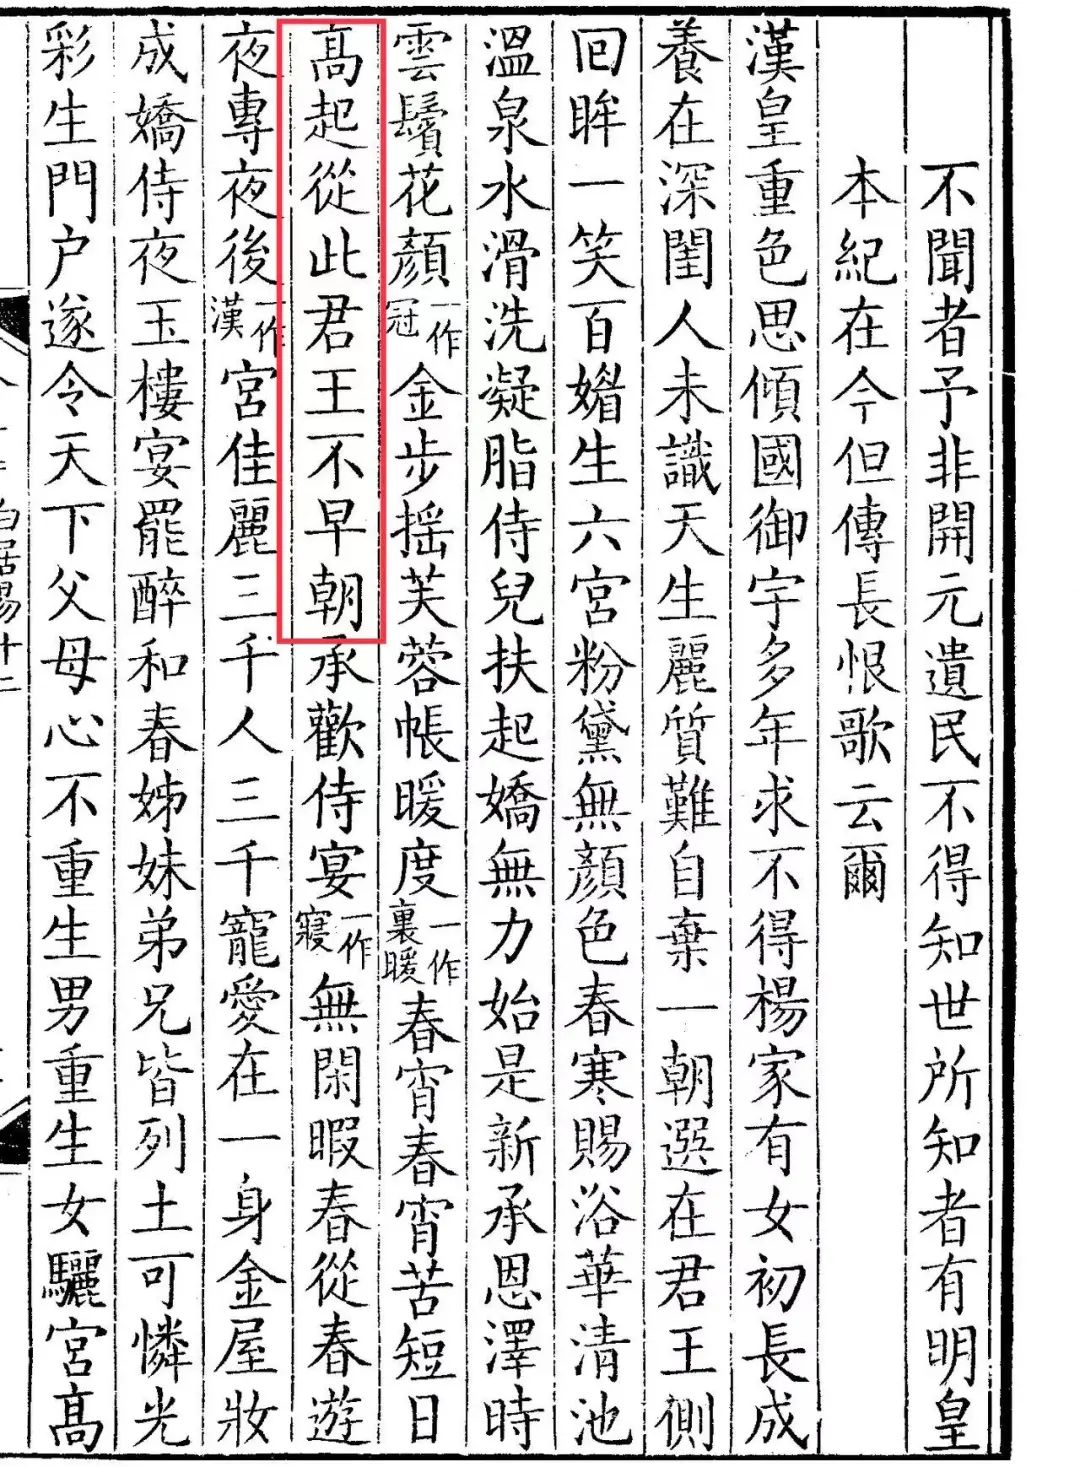 不聞者予非開元遺民不得知世所知者有明皇
本紀在今但傳長恨歌云爾
漢皇重色思傾國御宇多年求不得楊家有女初長成
養在深閨人未識天生麗質難自棄一朝選在君王側
回眸一笑百媚生六宮粉黛無顏色春寒賜浴華清池
溫泉水滑洗凝脂侍兒扶起嬌無力始是新承恩澤時
雲鬢花顏一作冠金步搖芙蓉帳暖度一作裏暖春宵春宵苦短日
髙起從此君王不早朝承歡侍宴一作寢無閑暇春從春遊
夜專夜後一作漢宮佳麗三千人三千寵愛在一身金屋妝
成嬌侍夜玉樓宴罷醉和春姊妹弟兄皆列土可憐光
彩生門户遂令天下父母心不重生男重生女驪宮髙
白居易十二